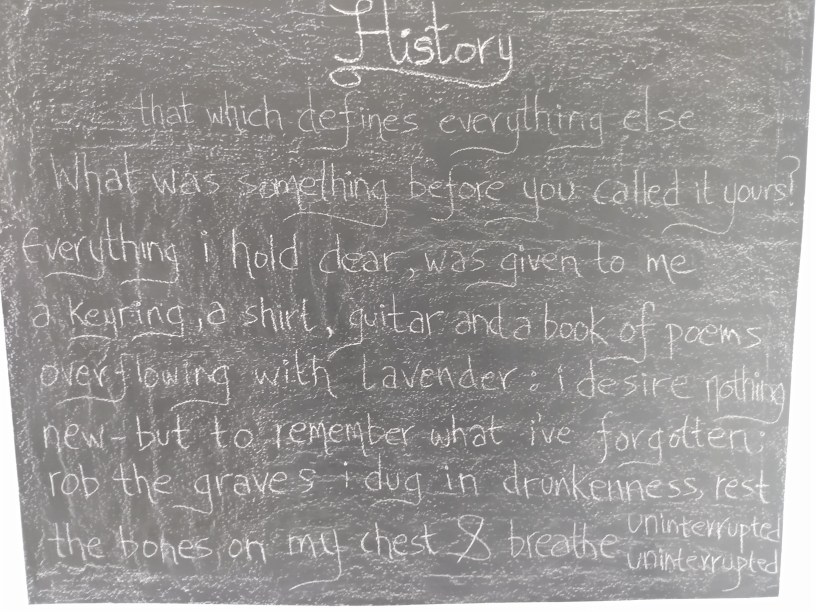 History
that which defines everything else
What was something before you called it yours?
Everything i hold dear, was given to me
a keyring, a shirt, guitar and a book of poems
overflowing with lavender: i desire nothing
new-but to remember what i've forgotten;
rob the graves i dug in drunkenness, rest
the bones on my chest & breathe uninterrupted
uninterrupted